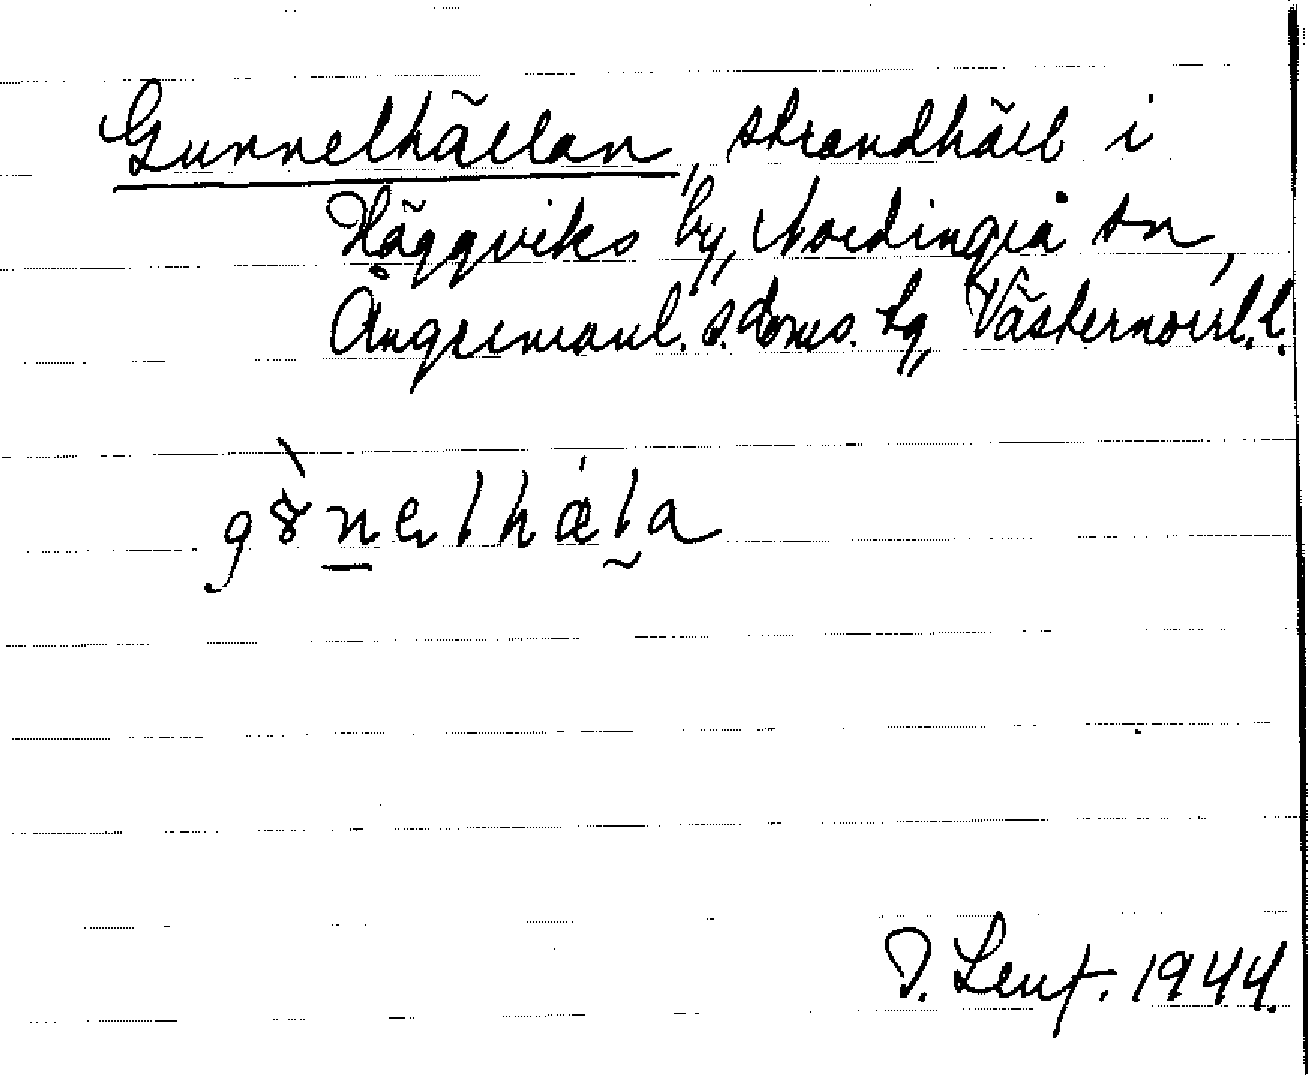 Gunnelhällan, strandhäll i
Häggviks by, Nordingrå sn,
Ångermanl. s. doms. tg, Västernorrl. l.
1944.